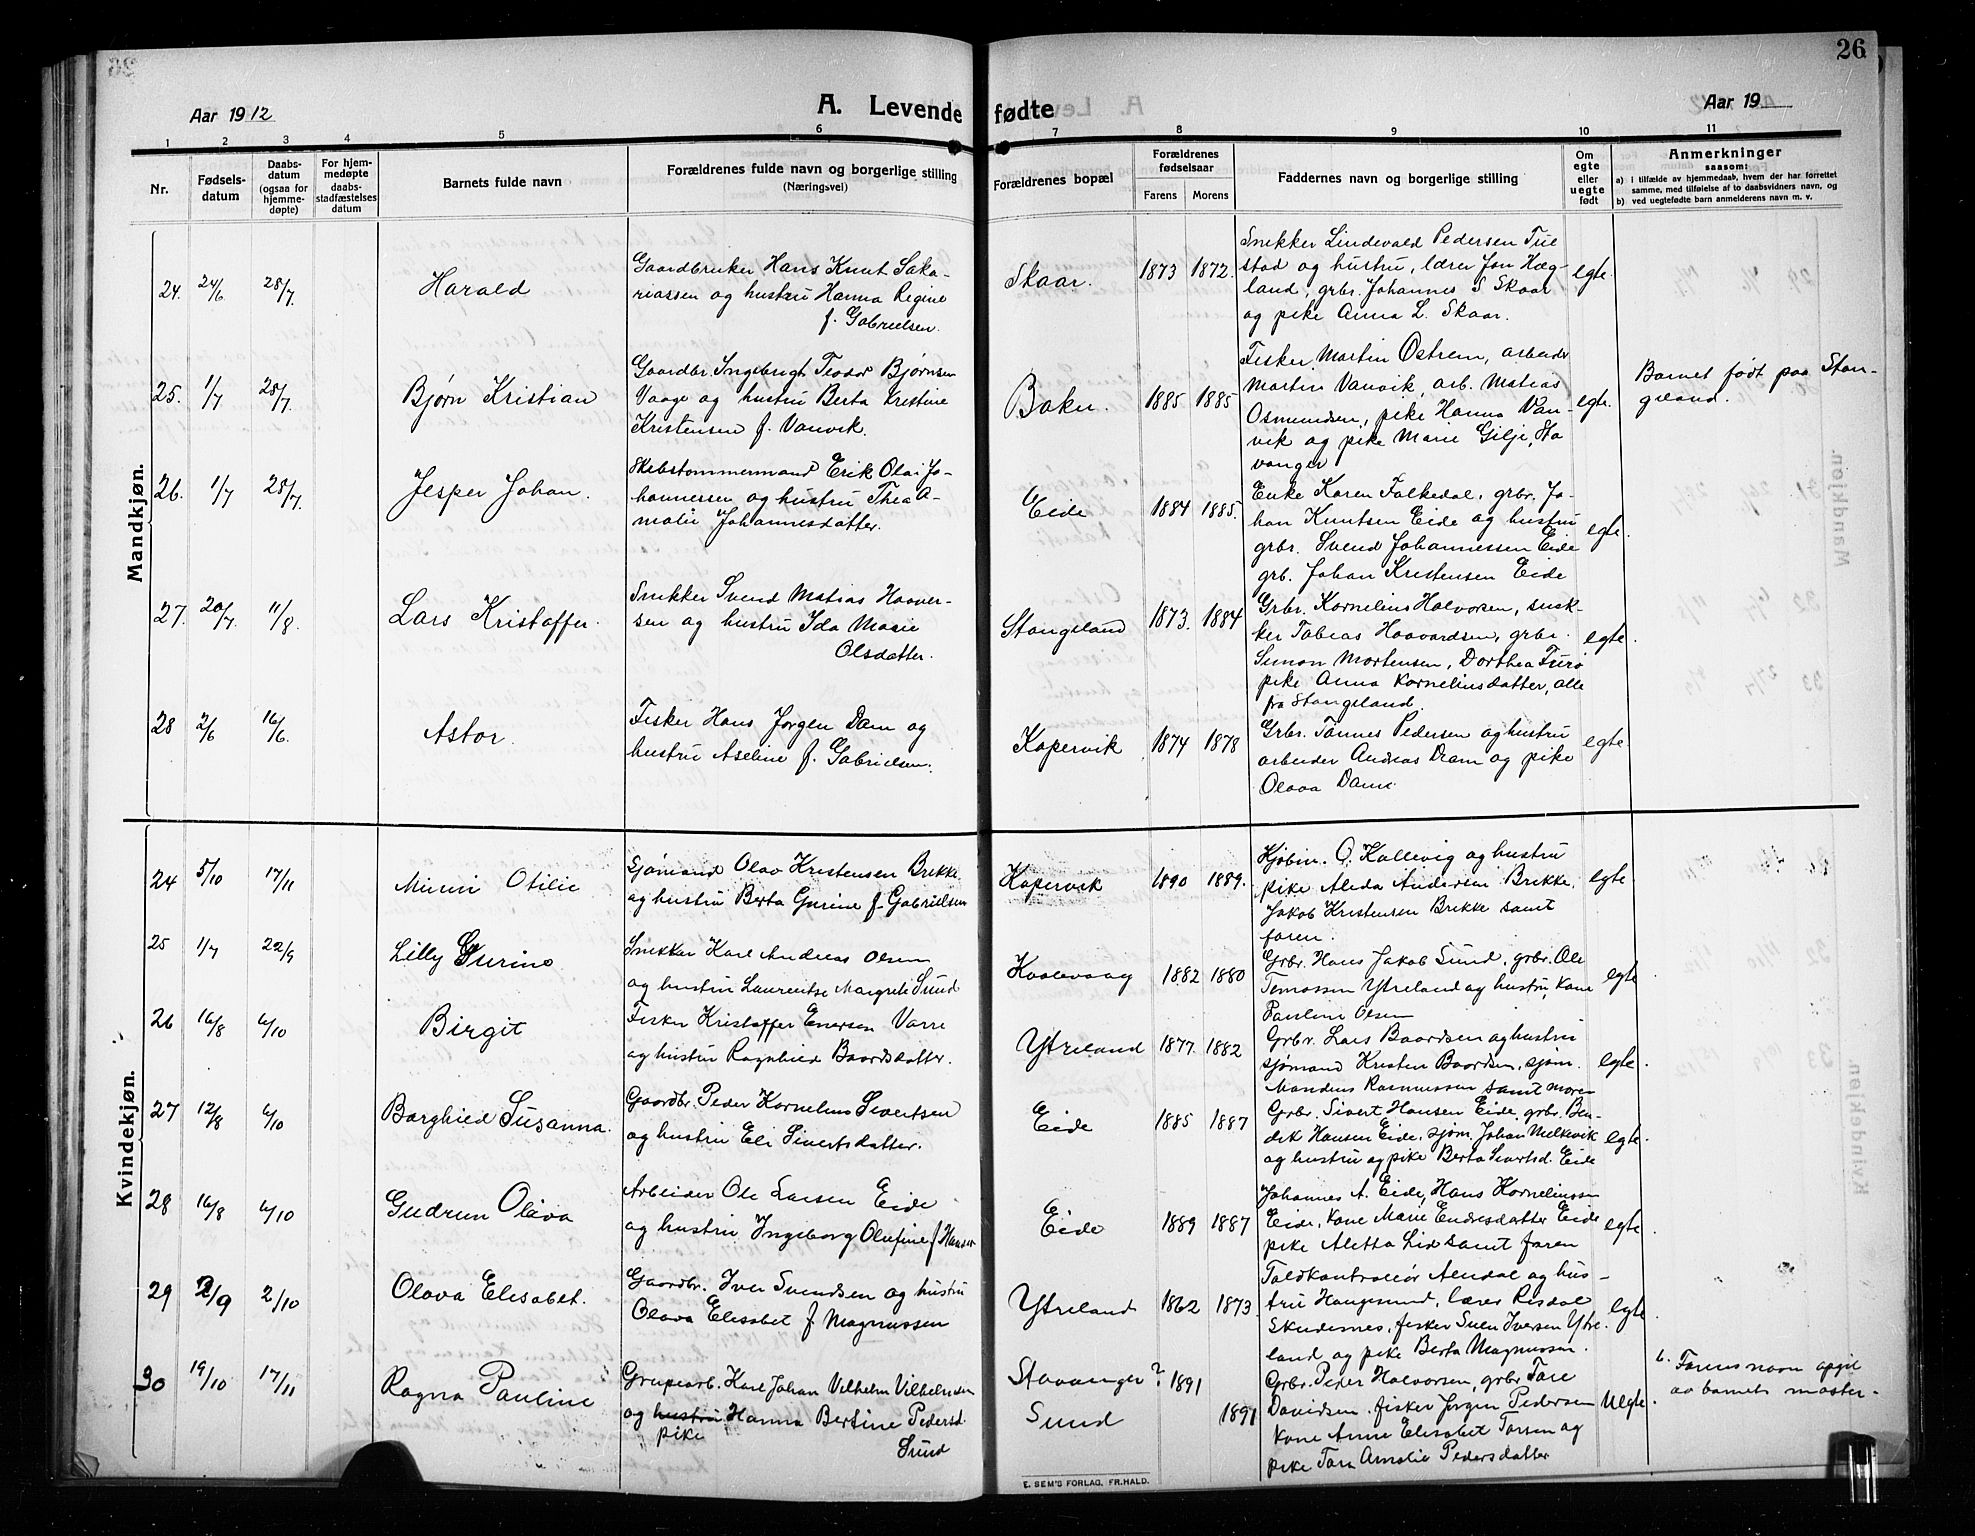 26
Aar 1912
A. Levende fødte
Aar 19
1 2 3 4 5 6 7 8 9 10 11
Nr.
Fødsels-
datum
Daabs-
datum
(ogsaa for
hjemme-
døpte)
For hjem-
medøpte
daabs-
stadfæstelses
datum
Barnets fulde navn
Forældrenes fulde navn og borgerlige stilling
(Næringsvei)
Forældrenes bopæl
Forældrenes
fødselsaar
Farens Morens
Faddernes navn og borgerlige stilling
Om
egte
eller
uegte
født
Anmerkninger
saasom:
a) i tilfælde av hjemmedaab, hvem der har forrettet
samme, med tilføielse af to daabsvidners navn, og
b) ved uegtefødte barn anmelderens navn m. v.
Mandkjøn.
24. 24/6 28/7. Harald
Gaardbruker Hans Knut Saka-
riassen og hustru Hanna Regine
f. Gabrielsen.
Skaar. 1873 1872.
Snekker Lindevald Pedersen Tue
stad og hustru, lærer Jon Hæg-
land, grbr. Johannes S Skaar
og pike Anna L. Skaar.
egte.
25. 1/7 28/7. Bjørn Kristian
Gaardbr. Ingebrigt Teodor Bjørnsen
Vaage og hustru Berta Kristine
Kristensen f. Vanvik.
Bokn. 1885 1885
Fisker Martin Østrem, arbeider
Martin Vanvik, arb. Matias
Osmundsen, pike Hanna Van-
vik og pike Marie Gilje, Sta
vanger
egte.
Barnet født paa Stan-
geland.
26. 1/7 28/7. Jesper Johan.
Skibstømmermand Erik Olai Jo-
hannessen og hustru Thea A-
malie Johannesdatter.
Eide 1884 1885.
Enke Karen Falkedal, grbr. Jo-
han Knutsen Eide og hustru
grbr. Svend Johannessen Eide
grb. Johan Kristensen Eide
egte.
27. 20/7. 11/8. Lars Kristoffer.
Snekker Svend Matias Haaver-
sen og hustru Ida Marie
Olsdatter.
Stangeland 1873. 1884
Grbr. Kornelius Halvorsen, snek-
ker Tobias Haavardsen, grbr.
Simon Mortensen, Dorthea
pike Anna Korneliusdatter, alle
fra Stangeland.
egte.
28 2/6 16/6. Astor.
Fisker Hans Jørgen Dam og
hustru Aseline f. Gabrielsen.
Kopervik 1874 1878
Grbr. Tønnes Pedersen og hustru
arbeider Andreas Dam og pike
Olava Dam.
egte.
Kvindekjøn.
24 5/10 17/11 Minni Otilie
Sjømand Olav Kristensen Brekke
og hustru Berta Gurine f. Gabrielsen
Kopervik 1890 1889.
Kjøbm. O. Kallevig og hustru
pike Aleda Andersen Brekke,
Jakob Kristensen Brekke samt
faren.
egte.
25 1/7 22/9 Lilly Gurine
Snekker Karl Andreas Olsen
og hustru Laurentse Margrete Sund
Kaalevaag 1882 1880
Grbr. Hans Jakob Sund, grbr. Ole
Tomassen Ytreland og hustru, kone
Pauline Olsen
egte
26 16/8 6/10 Birgit
Fisker Kristoffer Enersen Varre
og hustru Ragnhild Baardsdatter.
Ytreland 1877. 1882
Grbr. Lars Baardsen og hustru
sjømand Kristen Baardsen, sjøm.
Mandius Rasmussen samt moren
egte.
27 12/8 6/10 Borghild Susanna.
Gaardbr. Peder Kornelius Sivertsen
og hustru Eli Sivertsdatter.
Eide 1885 1887
Grbr. Sivert Hansen Eide, grbr. Ben-
dik Hansen Eide, sjøm. Johan Melkevik
og hustru og pike Berta Sivertsd. Eide
egte.
28 16/8 6/10 Gudrun Olava
Arbeider Ole Larsen Eide
og hustru Ingeborg Olufine f Hansen
Eide 1889 1887
Johannes A. Eide, Hans Kornelinssen
Eide, kone Marie Endresdatter Eide
pike Aletta Lid samt faren
egte.
29 2/9 2/10 Olava Elisabet.
Gaardbr. Iver Svendsen og hustru
Olava Elisabet f Magnussen
Ytreland 1862 1873.
Toldkontrollør Alendal og hus-
tru Haugesund, lærer Risdal
Skudesnes, fisker Sven Iversen Ytre
land og pike Berta Magnussen.
egte.
30 19/10 17/11 Ragna Pauline
Grupearb. Karl Johan Vilhelm Vilhelmsen
og hustru Hanna Bertine Pedersd
pike Sund
Stavanger? 1891
Sund 1891
Grbr. Peder Halvorsen, grbr Tore
Davidsen, fisker Jørgen Pedersen
Kone Anne Elisabet Torsen og
pike Tora Amalie Pedersdatter
Uegte.
b. Farens navn opgit
av barnets moster.
E. SEM'S FORLAG, FR.HALD.